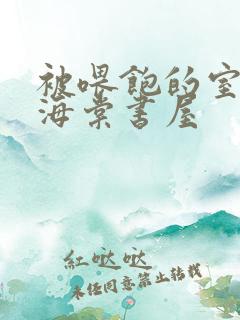 被喂饱的室
海棠书屋
紅哒哒
未经同意禁止转载